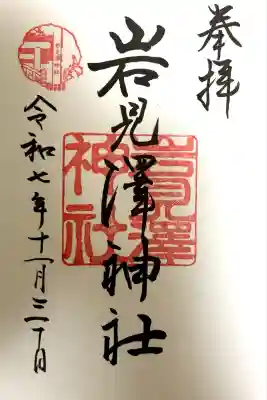 奉拝
岩見澤神社
岩見澤
神社
令和七年十一月三十日